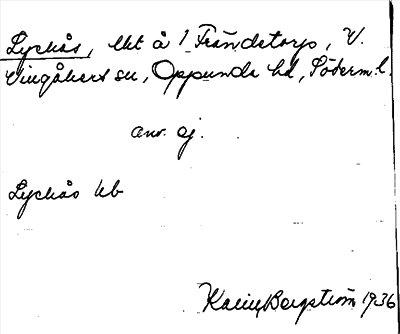 Lyckås, lht å 1 Frändstorp, V.
Vingåkers sn, Oppunda hd, Söderm. l.
anv. ej.
Lyckås kb
Karin Bergström 1936